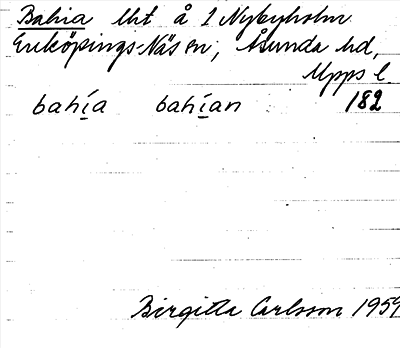 Bahia lht å 1 Nybyholm
Enköpings-Näs sn, Åsunda hd,
Upps l.
bahía bahían 182
Birgitta Carlsson 1959